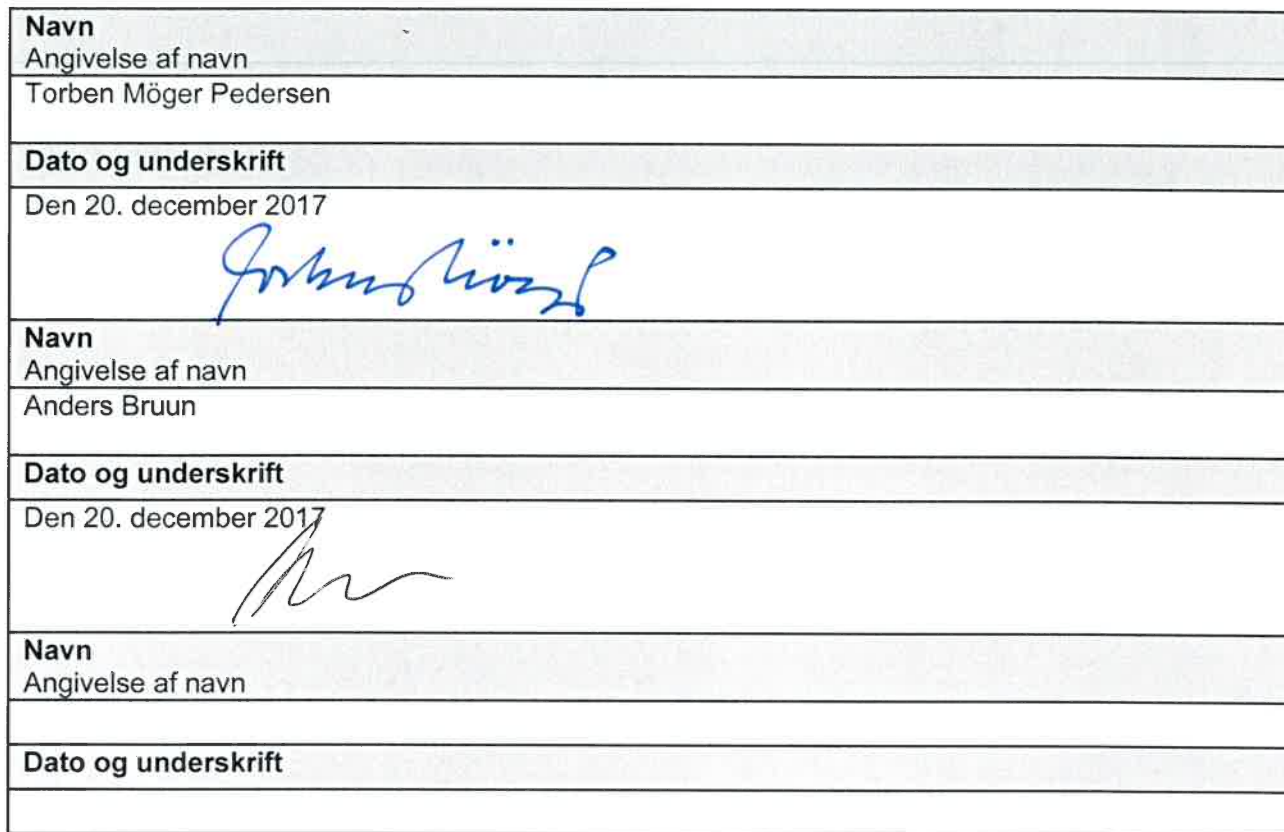 Navn
Angivelse af navn
Torben Möger Pedersen
Dato og underskrift
Den 20. december 2017
Navn
Angivelse af navn
Anders Bruun
Dato og underskrift
Den 20. december 2017
Navn
Angivelse af navn
Dato og underskrift